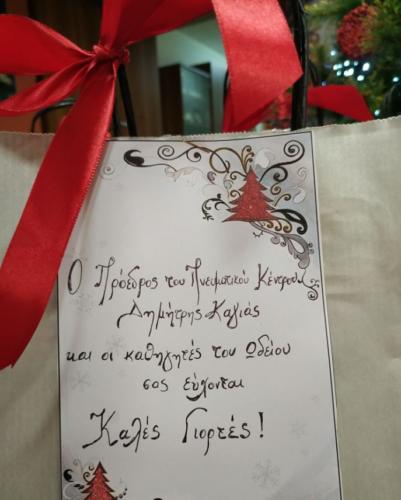 Ο Πρόεδρος του Πνευματικού Κέντρου
Δημήτρης Καγιάς
και οι καθηγητές του Ωδείου
σας εύχονται
Καλές Γιορτές!